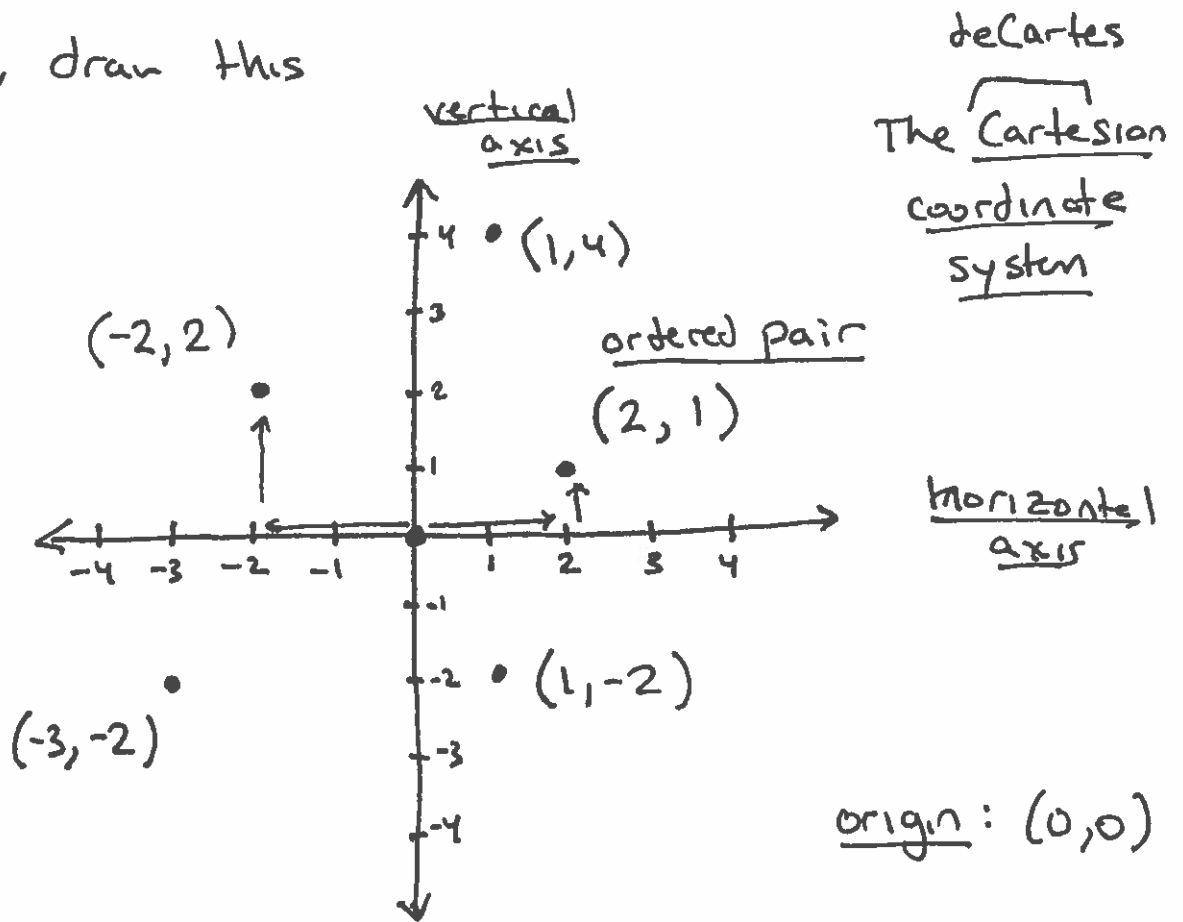 , draw this
deCartes
The Cartesian
coordinate
system
vertical
axis
4
(1,4)
3
(-2,2)
ordered pair
2
(2, 1)
1
horizontal
axis
-4 -3 -2 -1 1 2 3 4
-1
-2
(1,-2)
(-3,-2)
-3
-4
origin: (0,0)